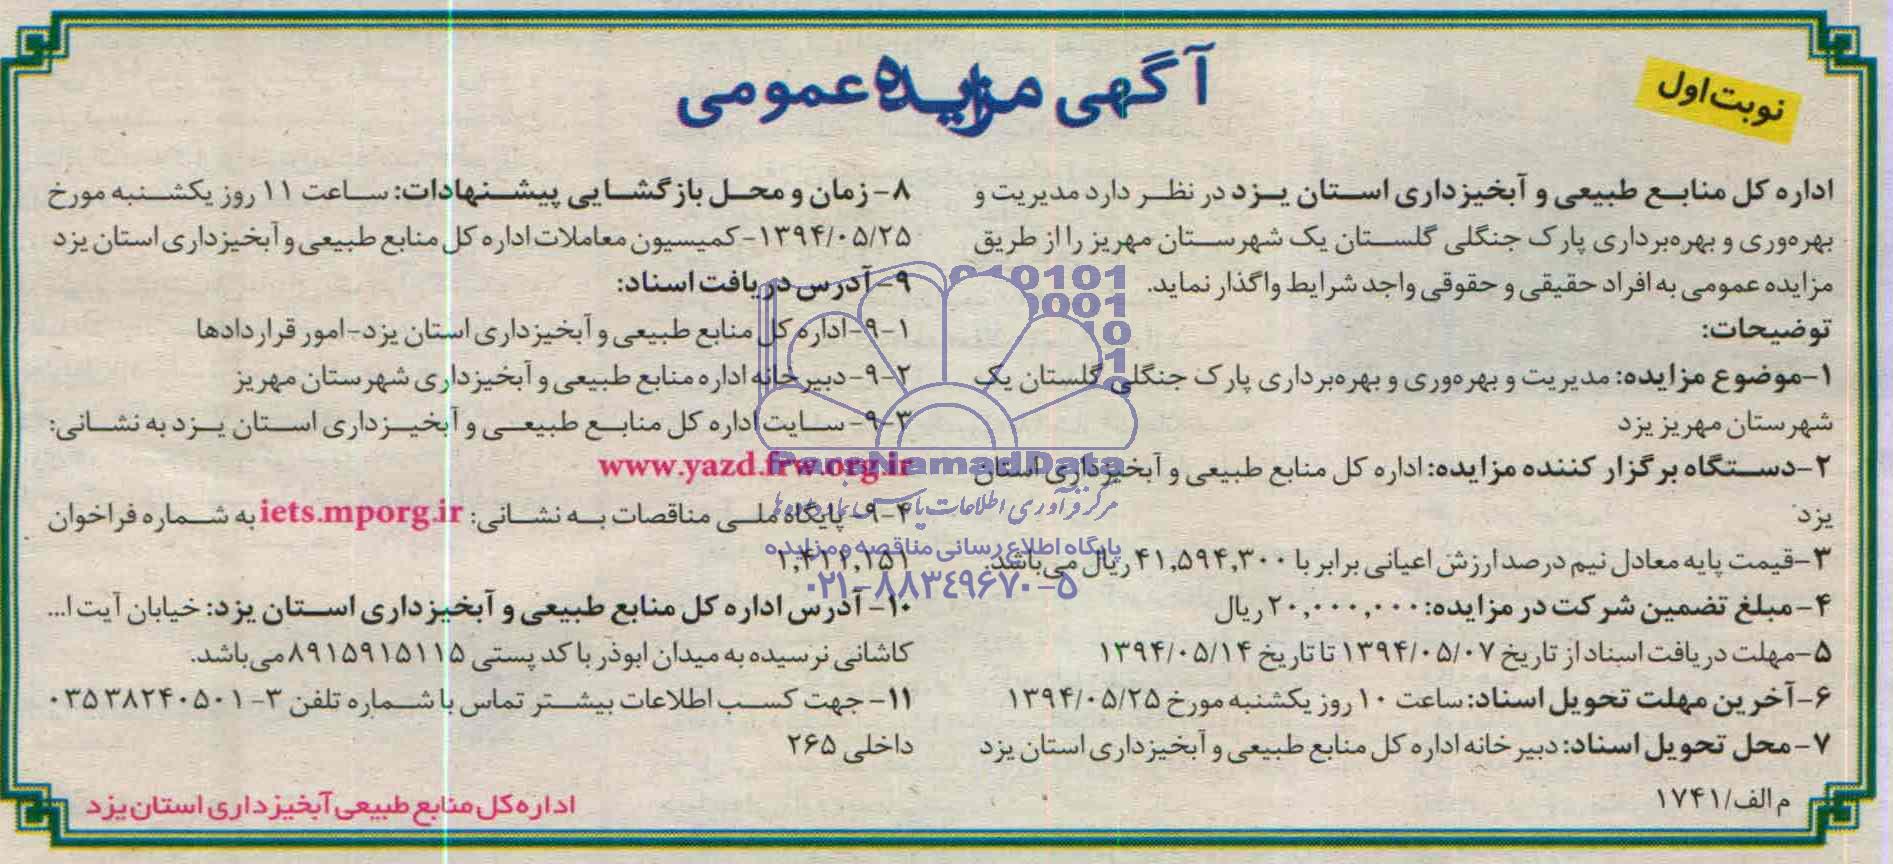 نوبت اول
آگهی مزایده عمومی
اداره کل منابع طبیعی و آبخیزداری استان یزد در نظر دارد مدیریت و
بهره‌وری و بهره‌برداری پارک جنگلی گلستان یک شهرستان مهریز را از طریق
مزایده عمومی به افراد حقیقی و حقوقی واجد شرایط واگذار نماید.
توضیحات:
۱-موضوع مزایده: مدیریت و بهره‌وری و بهره‌برداری پارک جنگلی گلستان یک
شهرستان مهریز یزد
۲-دستگاه برگزار کننده مزایده: اداره کل منابع طبیعی و آبخیزداری استان
یزد
۳-قیمت پایه معادل نیم درصد ارزش اعیانی برابر با ۴۱,۵۹۴,۳۰۰ ریال می‌باشد.
۴-مبلغ تضمین شرکت در مزایده: ۲۰,۰۰۰,۰۰۰ ریال
۵-مهلت دریافت اسناد از تاریخ ۱۳۹۴/۰۵/۰۷ تا تاریخ ۱۳۹۴/۰۵/۱۴
۶-آخرین مهلت تحویل اسناد: ساعت ۱۰ روز یکشنبه مورخ ۱۳۹۴/۰۵/۲۵
۷-محل تحویل اسناد: دبیرخانه اداره کل منابع طبیعی و آبخیزداری استان یزد
م الف/۱۷۴۱
۸- زمان و محل بازگشایی پیشنهادات: ساعت ۱۱ روز یکشنبه مورخ
۱۳۹۴/۰۵/۲۵- کمیسیون معاملات اداره کل منابع طبیعی و آبخیزداری استان یزد
۹- آدرس دریافت اسناد:
۹-۱-اداره کل منابع طبیعی و آبخیزداری استان یزد-امور قراردادها
۹-۲-دبیرخانه اداره منابع طبیعی و آبخیزداری شهرستان مهریز
۹-۳- سایت اداره کل منابع طبیعی و آبخیزداری استان یزد به نشانی:
www.yazd.frw.org.ir
۹-۴-پایگاه ملی مناقصات به نشانی: iets.mporg.ir به شماره فراخوان
۱,۴۲۲,۱۵۱
۱۰- آدرس اداره کل منابع طبیعی و آبخیزداری استان یزد: خیابان آیت ا...
کاشانی نرسیده به میدان ابوذر با کد پستی ۸۹۱۵۹۱۵۱۱۵ می‌باشد.
۱۱- جهت کسب اطلاعات بیشتر تماس با شماره تلفن ۳-۰۳۵۳۸۲۴۰۵۰۱
داخلی ۲۶۵
اداره کل منابع طبیعی آبخیزداری استان یزد
ParsNamadData
مرکز فرآوری اطلاعات پارس نماد داده‌ها
پایگاه اطلاع رسانی مناقصه و مزایده
۰۲۱-۸۸۳۴۹۶۷۰-۵